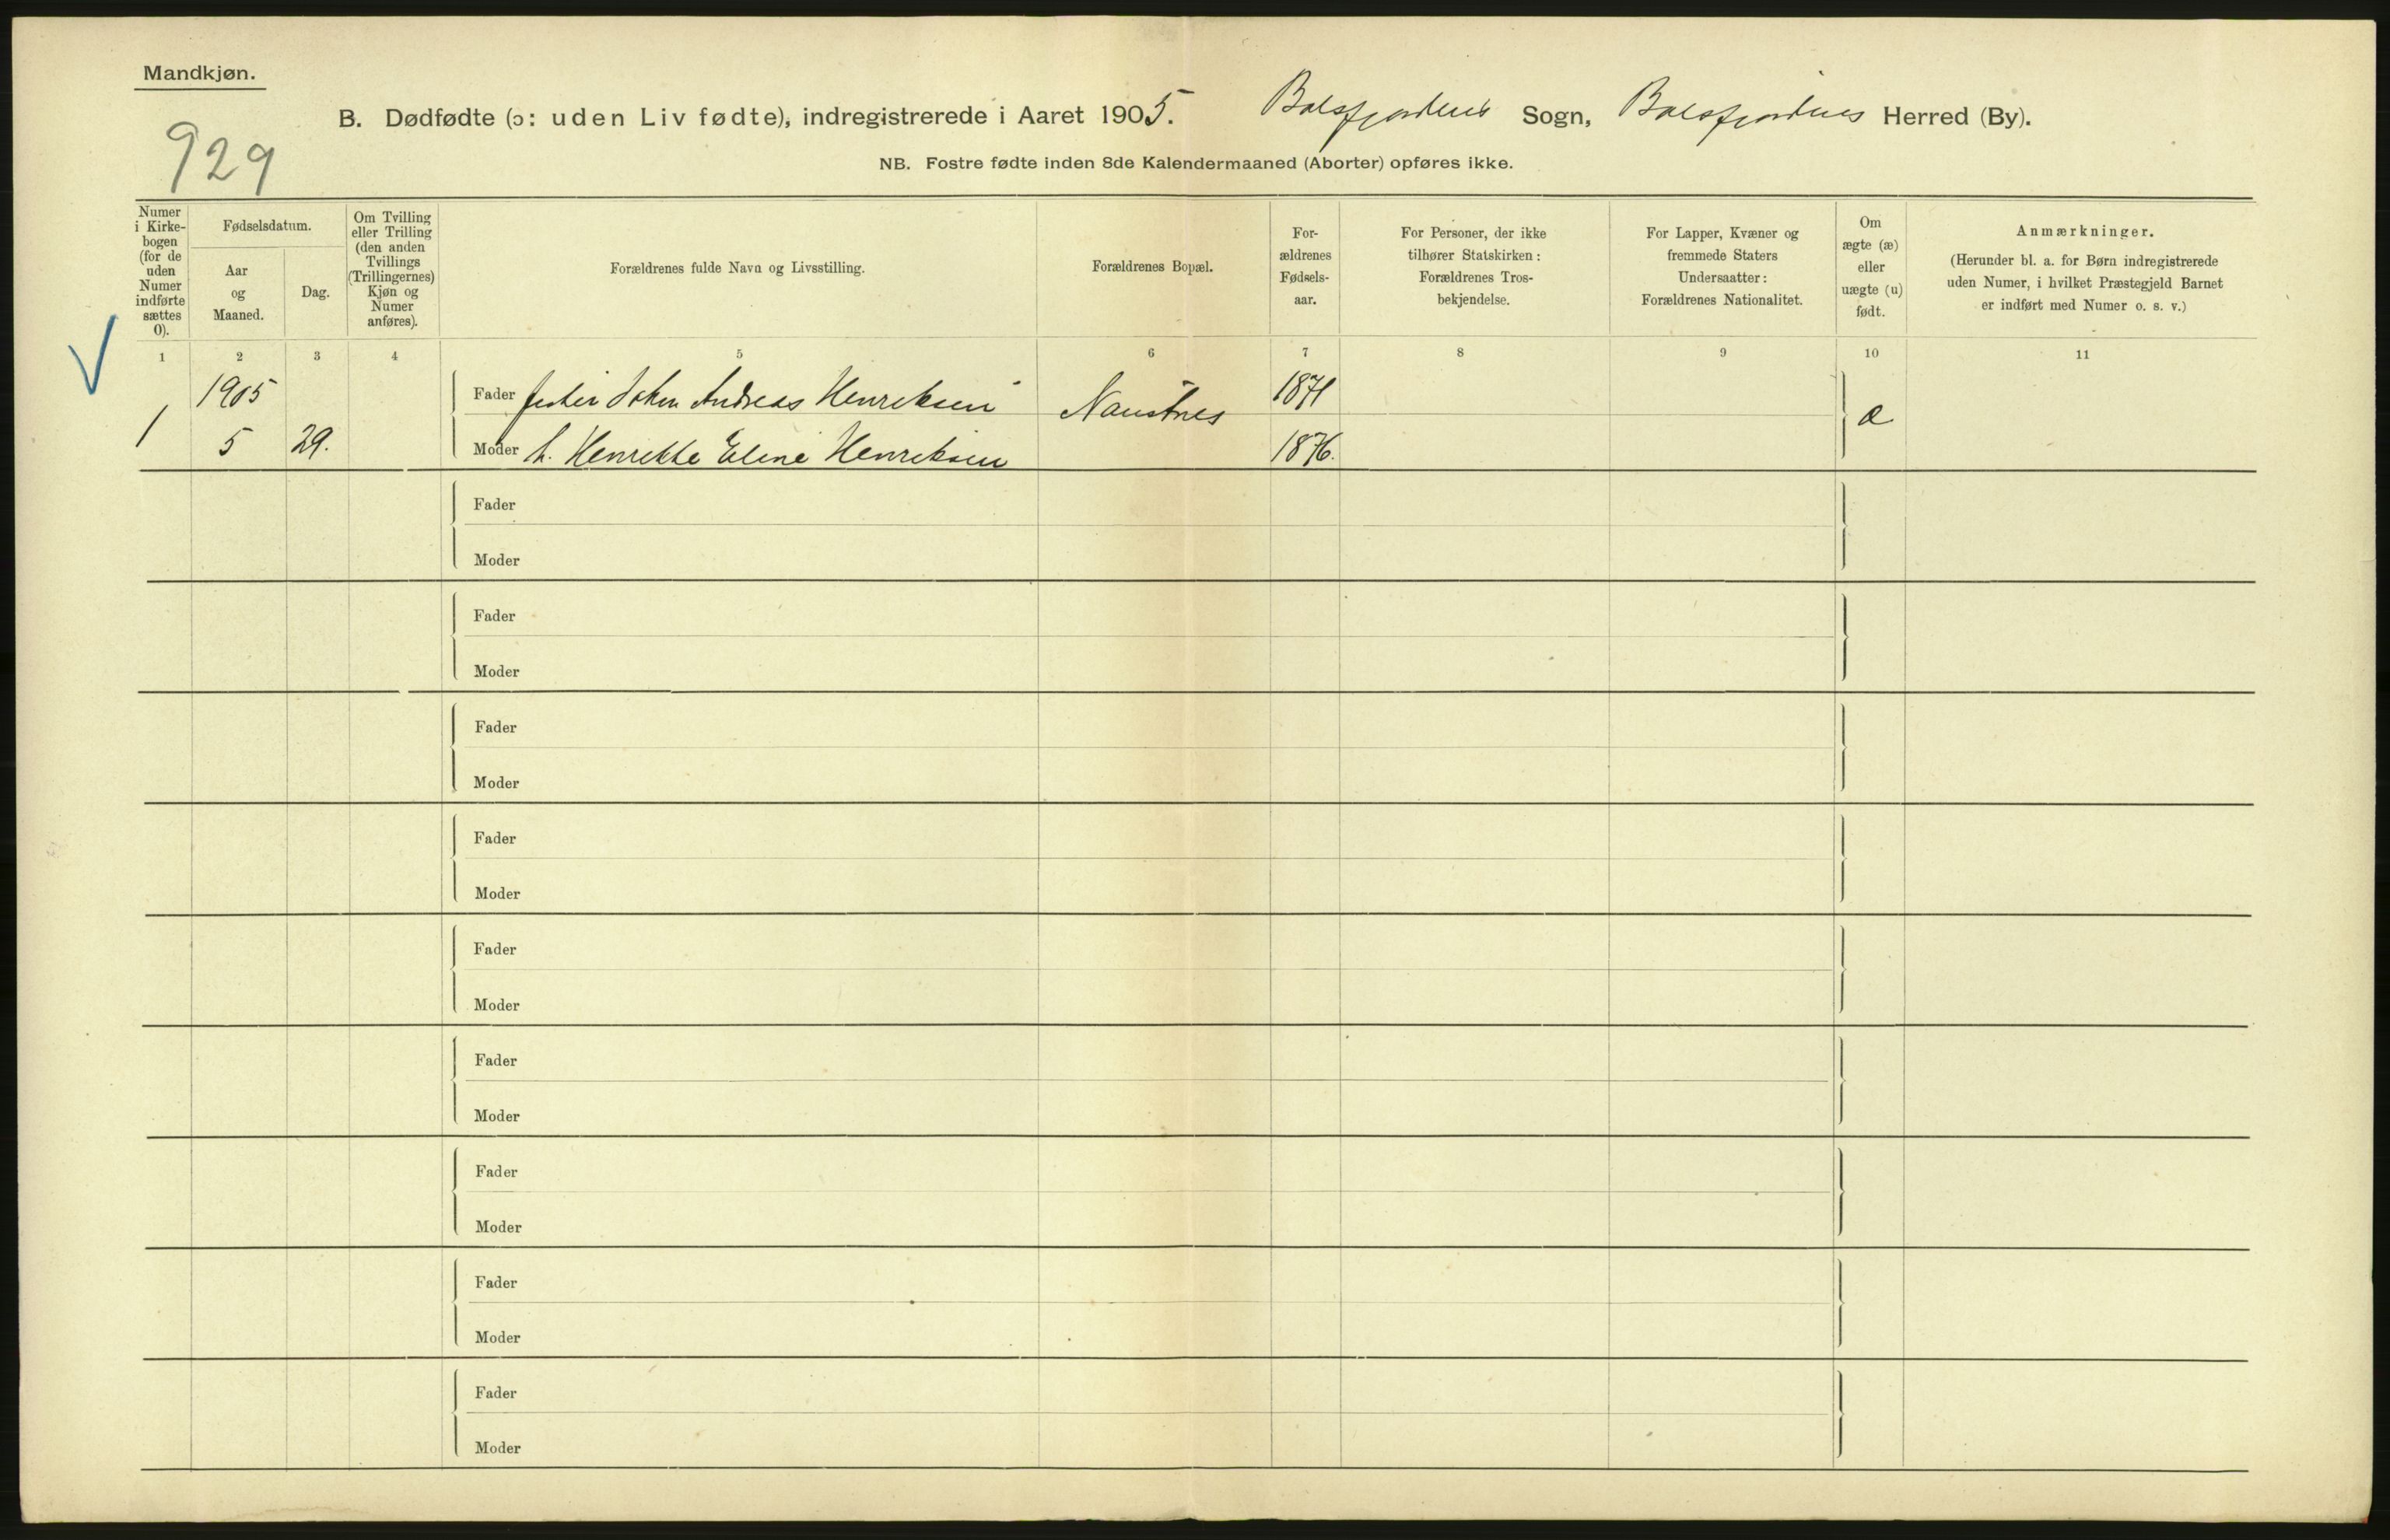 Mandkjøn.
B. Dødfødte (ɔ: uden Liv fødte), indregistrerede i Aaret 1905. Balsfjordens Sogn, Balsfjordens Herred (By).
929
NB. Fostre fødte inden 8de Kalendermaaned (Aborter) opføres ikke.
Numer
i Kirke-
bogen
(for de
uden
Numer
indførte
sættes
0).
Fødselsdatum.
Aar
og
Maaned.
Dag.
Om Tvilling
eller Trilling
(den anden
Tvillings
(Trillingernes)
Kjøn og
Numer
anføres).
Forældrenes fulde Navn og Livsstilling.
Forældrenes Bopæl.
For-
ældrenes
Fødsels-
aar.
For Personer, der ikke
tilhører Statskirken:
Forældrenes Tros-
bekjendelse.
For Lapper, Kvæner og
fremmede Staters
Undersaatter:
Forældrenes Nationalitet.
Om
ægte (æ)
eller
uægte (u)
født.
Anmærkninger.
(Herunder bl. a. for Børn indregistrerede
uden Numer, i hvilket Præstegjeld Barnet
er indført med Numer o. s. v.)
1 2 3 4 5 6 7 8 9 10 11
1905 Fader Johan Andreas Henriksen Naustnes 1871
æ
1 5 29. Moder h. Henrikke Eline Henriksen 1876.
Fader
Moder
Fader
Moder
Fader
Moder
Fader
Moder
Fader
Moder
Fader
Moder
Fader
Moder
Fader
Moder
Fader
Moder